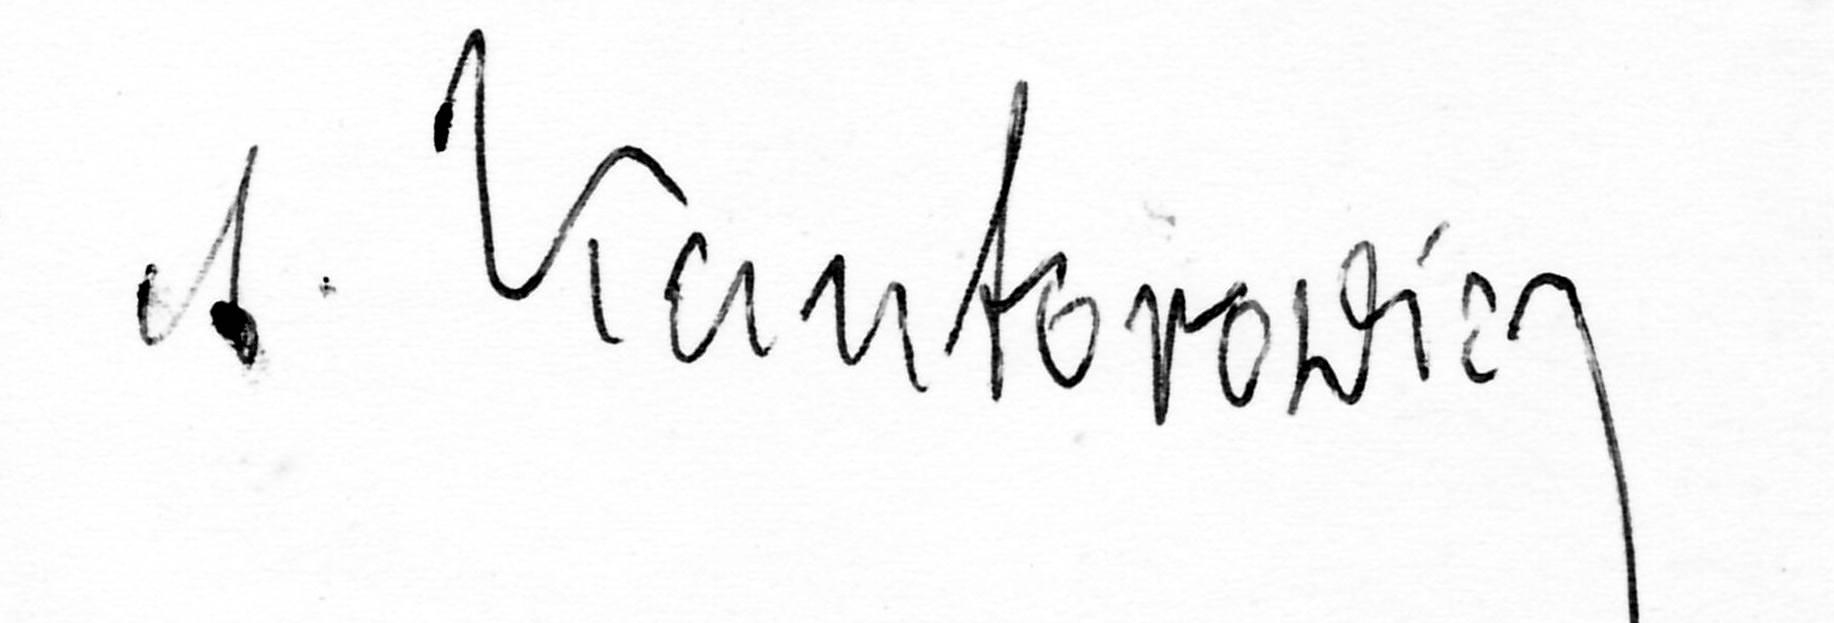 A. Kantorowicz